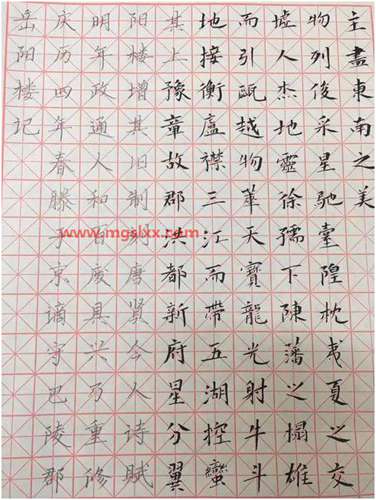 岳阳楼记
庆历四年春滕子京谪守巴陵郡
明年政通人和百废具兴乃重修
阳楼增其旧制刻唐贤今人诗赋
其上豫章故郡洪都新府星分翼
地接衡廬襟三江而帶五湖控蠻
而引甌越物華天寶龍光射牛斗
墟人杰地靈徐孺下陳蕃之榻雄
物列俊采星馳臺隍枕夷夏之交
主盡東南之美
www.mgslxx.com